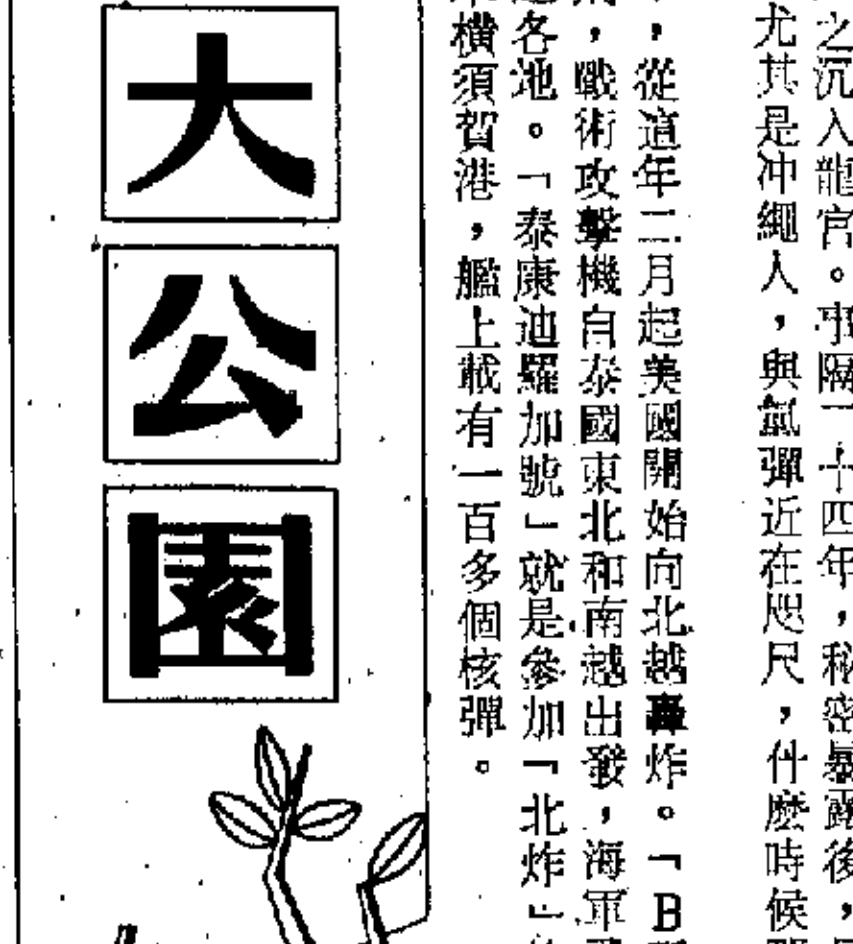 之沉入龍宮。事隔二十四年，秘密暴露後，
尤其是冲繩人，與氫彈近在咫尺，什麼時候
，從這年二月起美國開始向北越轟炸。「B
，戰術攻擊機自泰國東北和南越出發，海軍
各地。「泰康迪羅加號」就是參加「北炸」
橫須賀港，艦上載有一百多個核彈。
大公園